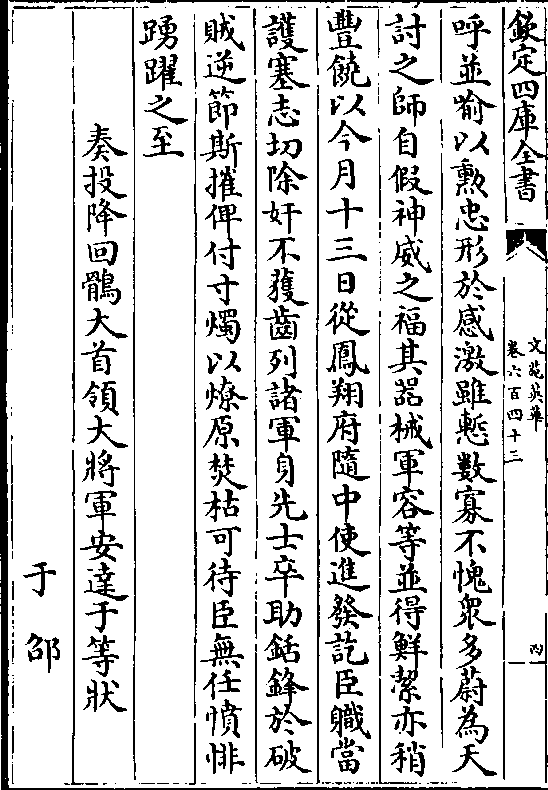 欽定四庫全書
文苑英華
卷六百四十三
四
呼並喻以勲忠形於感激雖慙數寡不愧衆多蔚為天
討之師自假神威之福其器械軍容等並得鮮潔亦稍
豐饒以今月十三日從鳳翔府隨中使進發訖臣職當
護塞志切除奸不獲齒列諸軍身先士卒助銛鋒於破
賊逆節斯摧俾付寸燭以燎原焚枯可待臣無任憤悱
踴躍之至
奏投降回鶻大首領大將軍安達于等狀
于邵